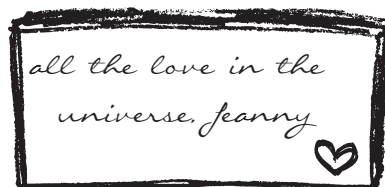 all the love in the
universe. Jeanny